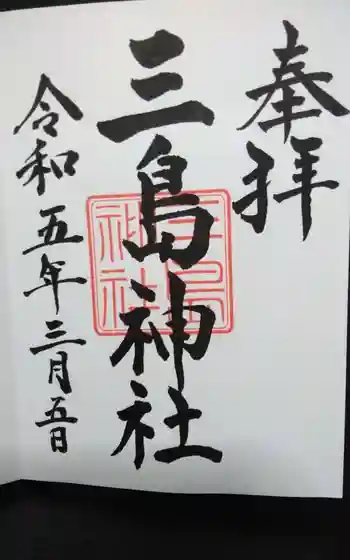 奉拝
三島神社
三島
神社
令和五年三月五日